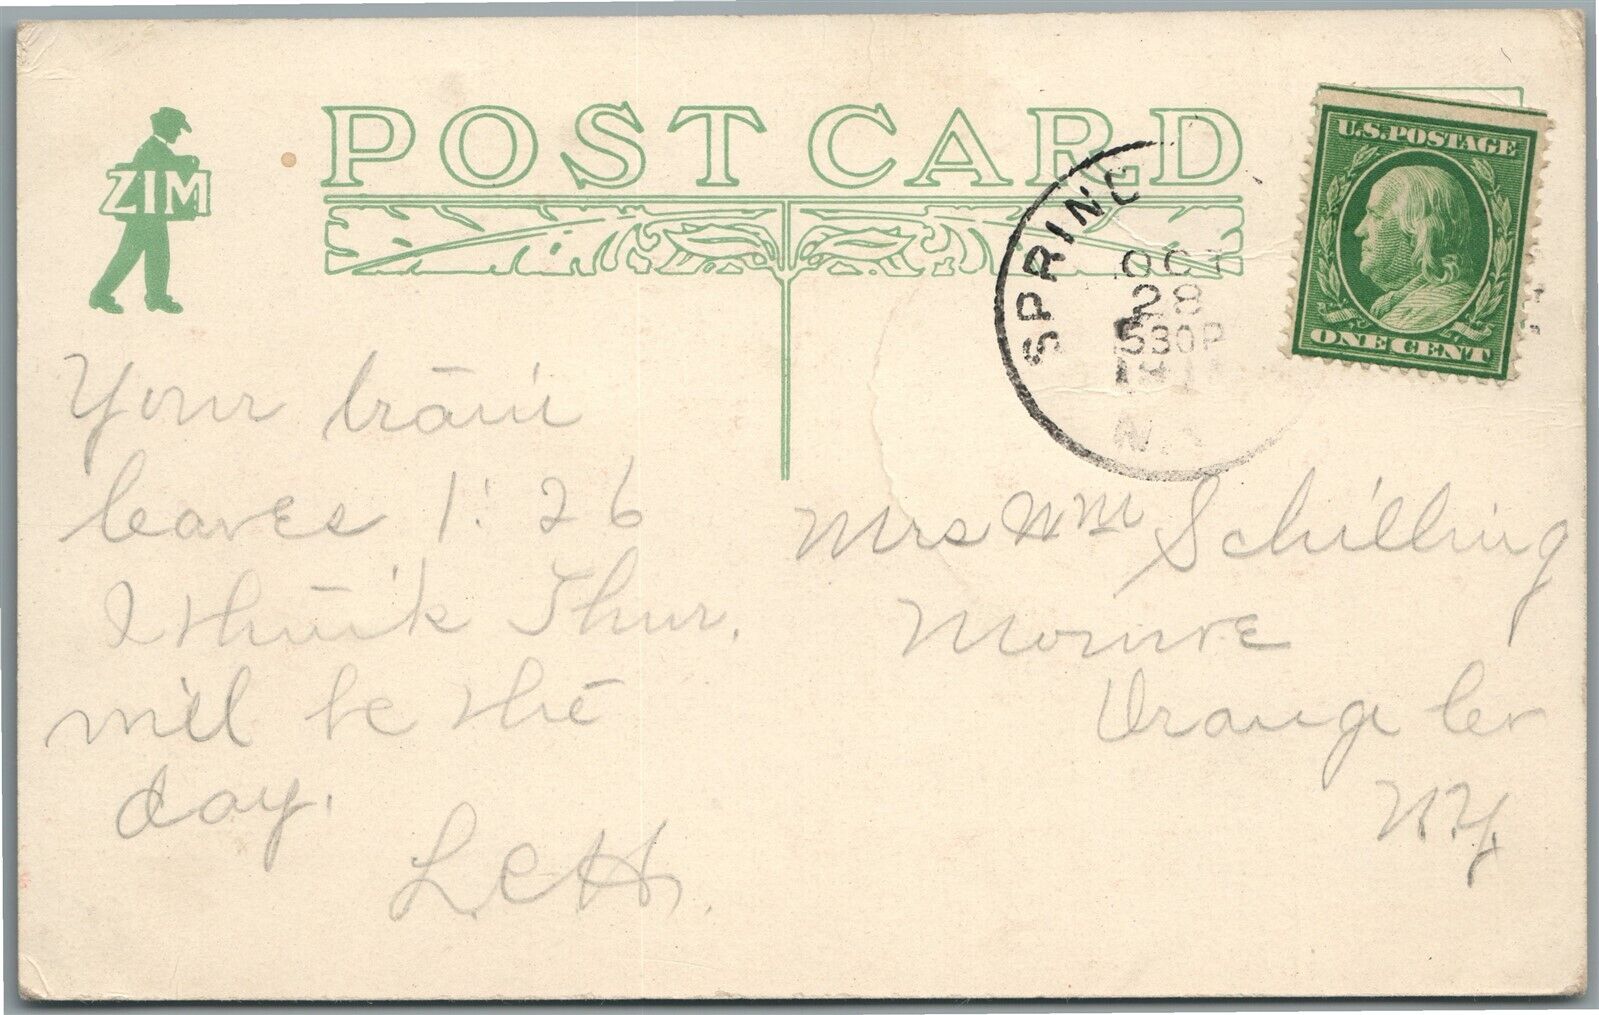 POST CARD
ZIM
U.S. POSTAGE
ONE CENT
SPRING
OCT
28
530P
N.
Your train
leaves 1:26
I think Thur.
will be the
day.
L.C.H.
Mrs Wm Schilling
Monroe
Orange Co
N.Y.